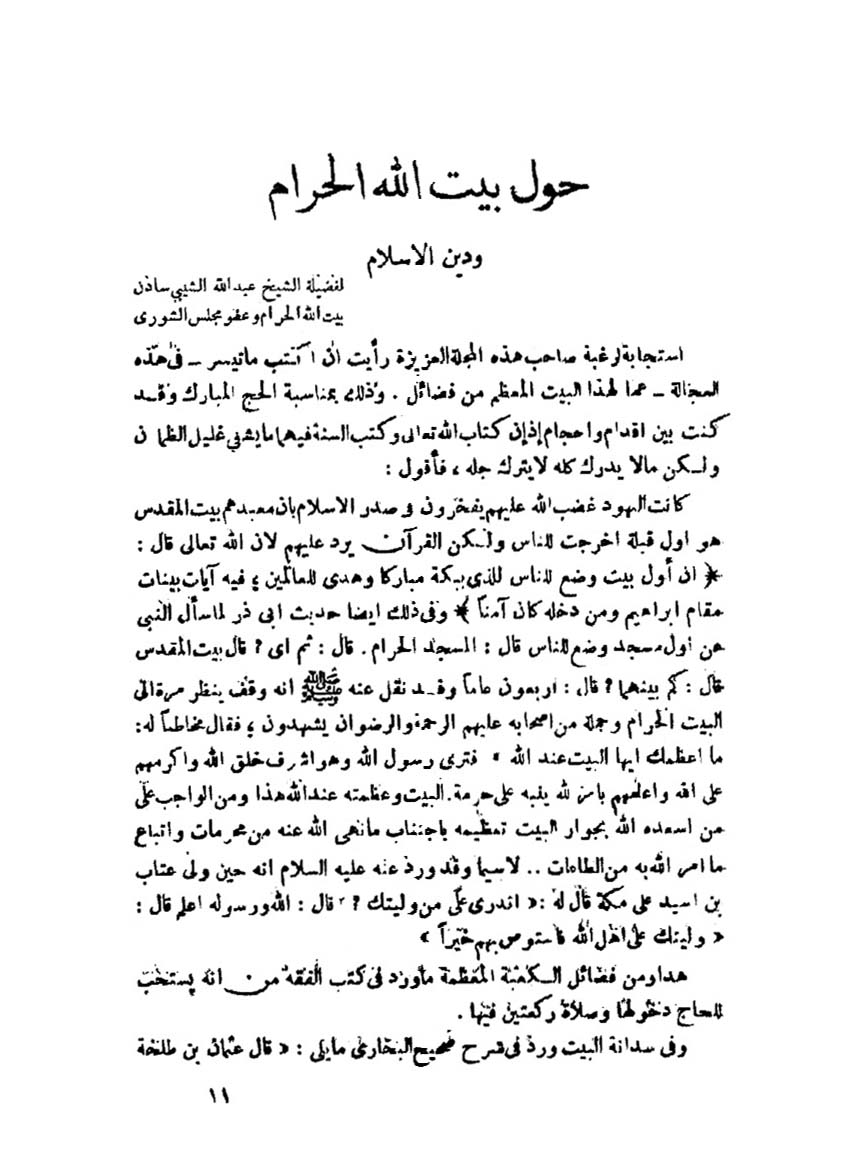 حول بيت الله الحرام
ودين الاسلام
لفضيلة الشيخ عبدالله الشيبي سادن
بيت الله الحرام وعضو مجلس الشورى
استجابة لرغبة صاحب هذه المجلة العزيزة رأيت ان اكتب ماتيسر ــ فى هذه
العجالة ــ عما لهذا البيت المعظم من فضائل . وذلك بمناسبة الحج المبارك وقــد
كنت بين اقدام واحجام إذ إن كتاب الله تعالى وكتب السنة فيهما ما يشفي غليل الظمآن
ولـكن مالا يدرك كله لايترك جله ، فأقول :
كانت اليهود غضب الله عليهم يفخرون فى صدر الاسلام بان معبدهم بيت المقدس
هو اول قبلة اخرجت للناس ولـكن القرآن يرد عليهم لان الله تعالى قال :
﴿ ان أول بيت وضع للناس للذى ببكة مباركا وهدى للعالمين ؛ فيه آيات بينات
مقام ابراهيم ومن دخله كان آمناً ﴾ وفى ذلك ايضا حديث ابى ذر لما سأل النبى
عن اول مسجد وضع للناس قال : المسجد الحرام . قال : ثم اى ? قال بيت المقدس
قال : كم بينهما ? قال : اربعون عاماً وقــد نقل عنه ﷺ انه وقف ينظر مرة الى
البيت الحرام وجملة من اصحابه عليهم الرحمة والرضوان يشهدون ؛ فقال مخاطباً له :
ما اعظمك ايها البيت عند الله » فترى رسول الله وهو اشرف خلق الله واكرمهم
على الله واعلمهم بامر لله ينبه على حرمة البيت وعظمته عند الله هذا ومن الواجب على
من اسعده الله بجوار البيت تعظيمه باجتناب مانهى الله عنه من محرمات واتباع
ما امر الله به من الطاعات .. لاسيما وقد ورد عنه عليه السلام انه حين ولى عتاب
بن اسيد على مكة قال له : « اتدرى على من وليتك ? » قال : الله ورسوله اعلم قال :
« وليتك على اهل الله فاستوص بهم خيراً »
هذا ومن فضائل الـكعبة المعظمة ماورد فى كتب الفقه من انه يستحب
للحاج دخولها وصلاة ركعتين فيها .
وفى سدانة البيت ورد فى شرح صحيح البخارى مايلى : « قال عثمان بن طلحة
١١